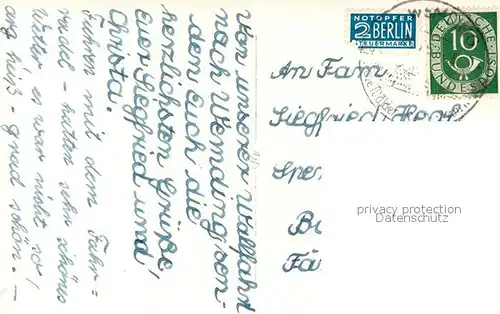 Von unserer Wallfahrt
nach Wemding sen-
den Euch die
herzlichsten Grüße
Euer Siegfried und
Christa.
Fuhren mit dem Fahr=
radl - hatten sehr schönes
Wetter es war nicht so
arg heiß - grad schön. -
NOTOPFER
2 BERLIN
STEUERMARKE
DEUTSCHE BUNDESPOST
10
An Fam.
Siegfried
privacy protection